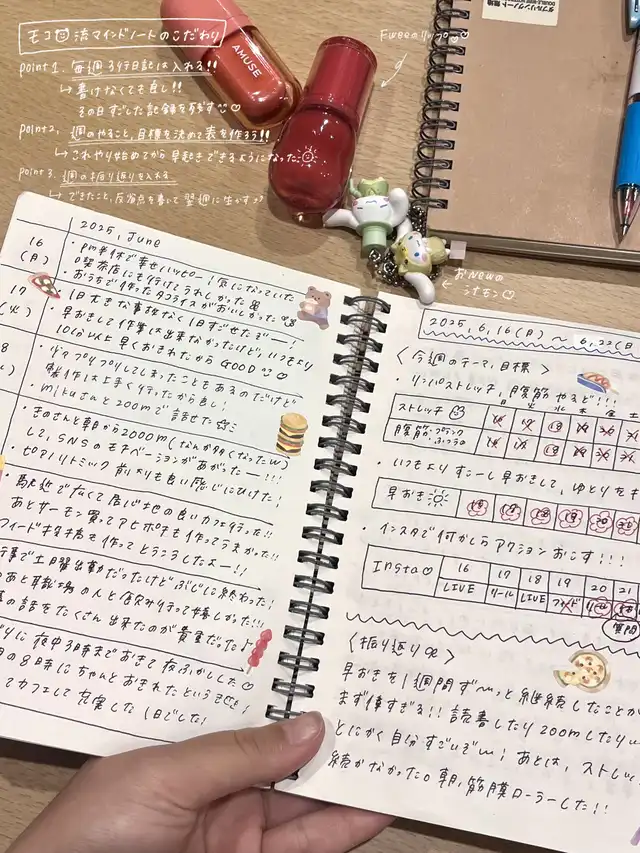 モコ流マインドノートのこだわり
point 1. 毎週3行日記は入れる!!
↳ 書けなくても良し!!
その日すごした記録を残す♡
point 2. 週のやること、目標を決めて表を作ろう!!
↳ これやり始めてから早起きできるようになった
point 3. 週の振り返りを入れる
↳ できたこと、反省点を書いて翌週に生かす
AMUSE
Fweeのリップ♡
ダブルリングノート
おNewの
シナモン♡
2025, June
16
(月)
・pm半休で幸せハッピー!気になっていた
喫茶店にも行けてうれしかった
・おうちで作ったタコライスがおいしかった
17
(火)
・1日大きな事故なく1日すごせたぞー!
・早おきして作業は出来なかったけど、いつもより
10分以上早くおきれたから GOOD
8
・ゲキプリプリしてしまったこともあるのだけど
製作は上手く行ったから良し!
・mikuさんと200mで話せた
・きのさんと朝から2000m(なんか多くなったw)
して、SNSのモチベーションがあがったー!!!
・ピアノリトミック前よりも良い感じにひけた!
駅近で広くて居心地の良いカフェ行った!!
あとサーモン買ってアヒポキも作ってうまかった!!
フィード
土曜出勤だったけどぶじに終わった!
あと職場の人と飲み行って楽しかった!!
の話をたくさん出来たのが貴重だった♪
りに夜中3時までおきて夜ふかしした♡
の8時にちゃんとおきれたという
カフェして充実した1日でした!
2025, 6, 16(月) 〜 6, 22(日
〈今週のテーマ、目標〉
・リンパストレッチ、腹筋やるぞ!!!
火 水 木 金 土
ストレッチ 16 17 18 19 20 21
腹筋 プランク ふつうの 16 17 18 19 20 21
・いつもよりすこーし早おきして、ゆとりを
早おき 16 17 18 19 20 21
・インスタで何かしらアクションおこす!!!
Insta♡ 16 17 18 19 20 21
LIVE リール LIVE フィード リール
質問
〈振り返り〉
早おきを1週間ず〜っと継続したことが
まず偉すぎる!!読書したり200mしたり
とにかく自分すごいぞ〜!あとは、ストレッ
続かなかった 朝、筋膜ローラーした!!